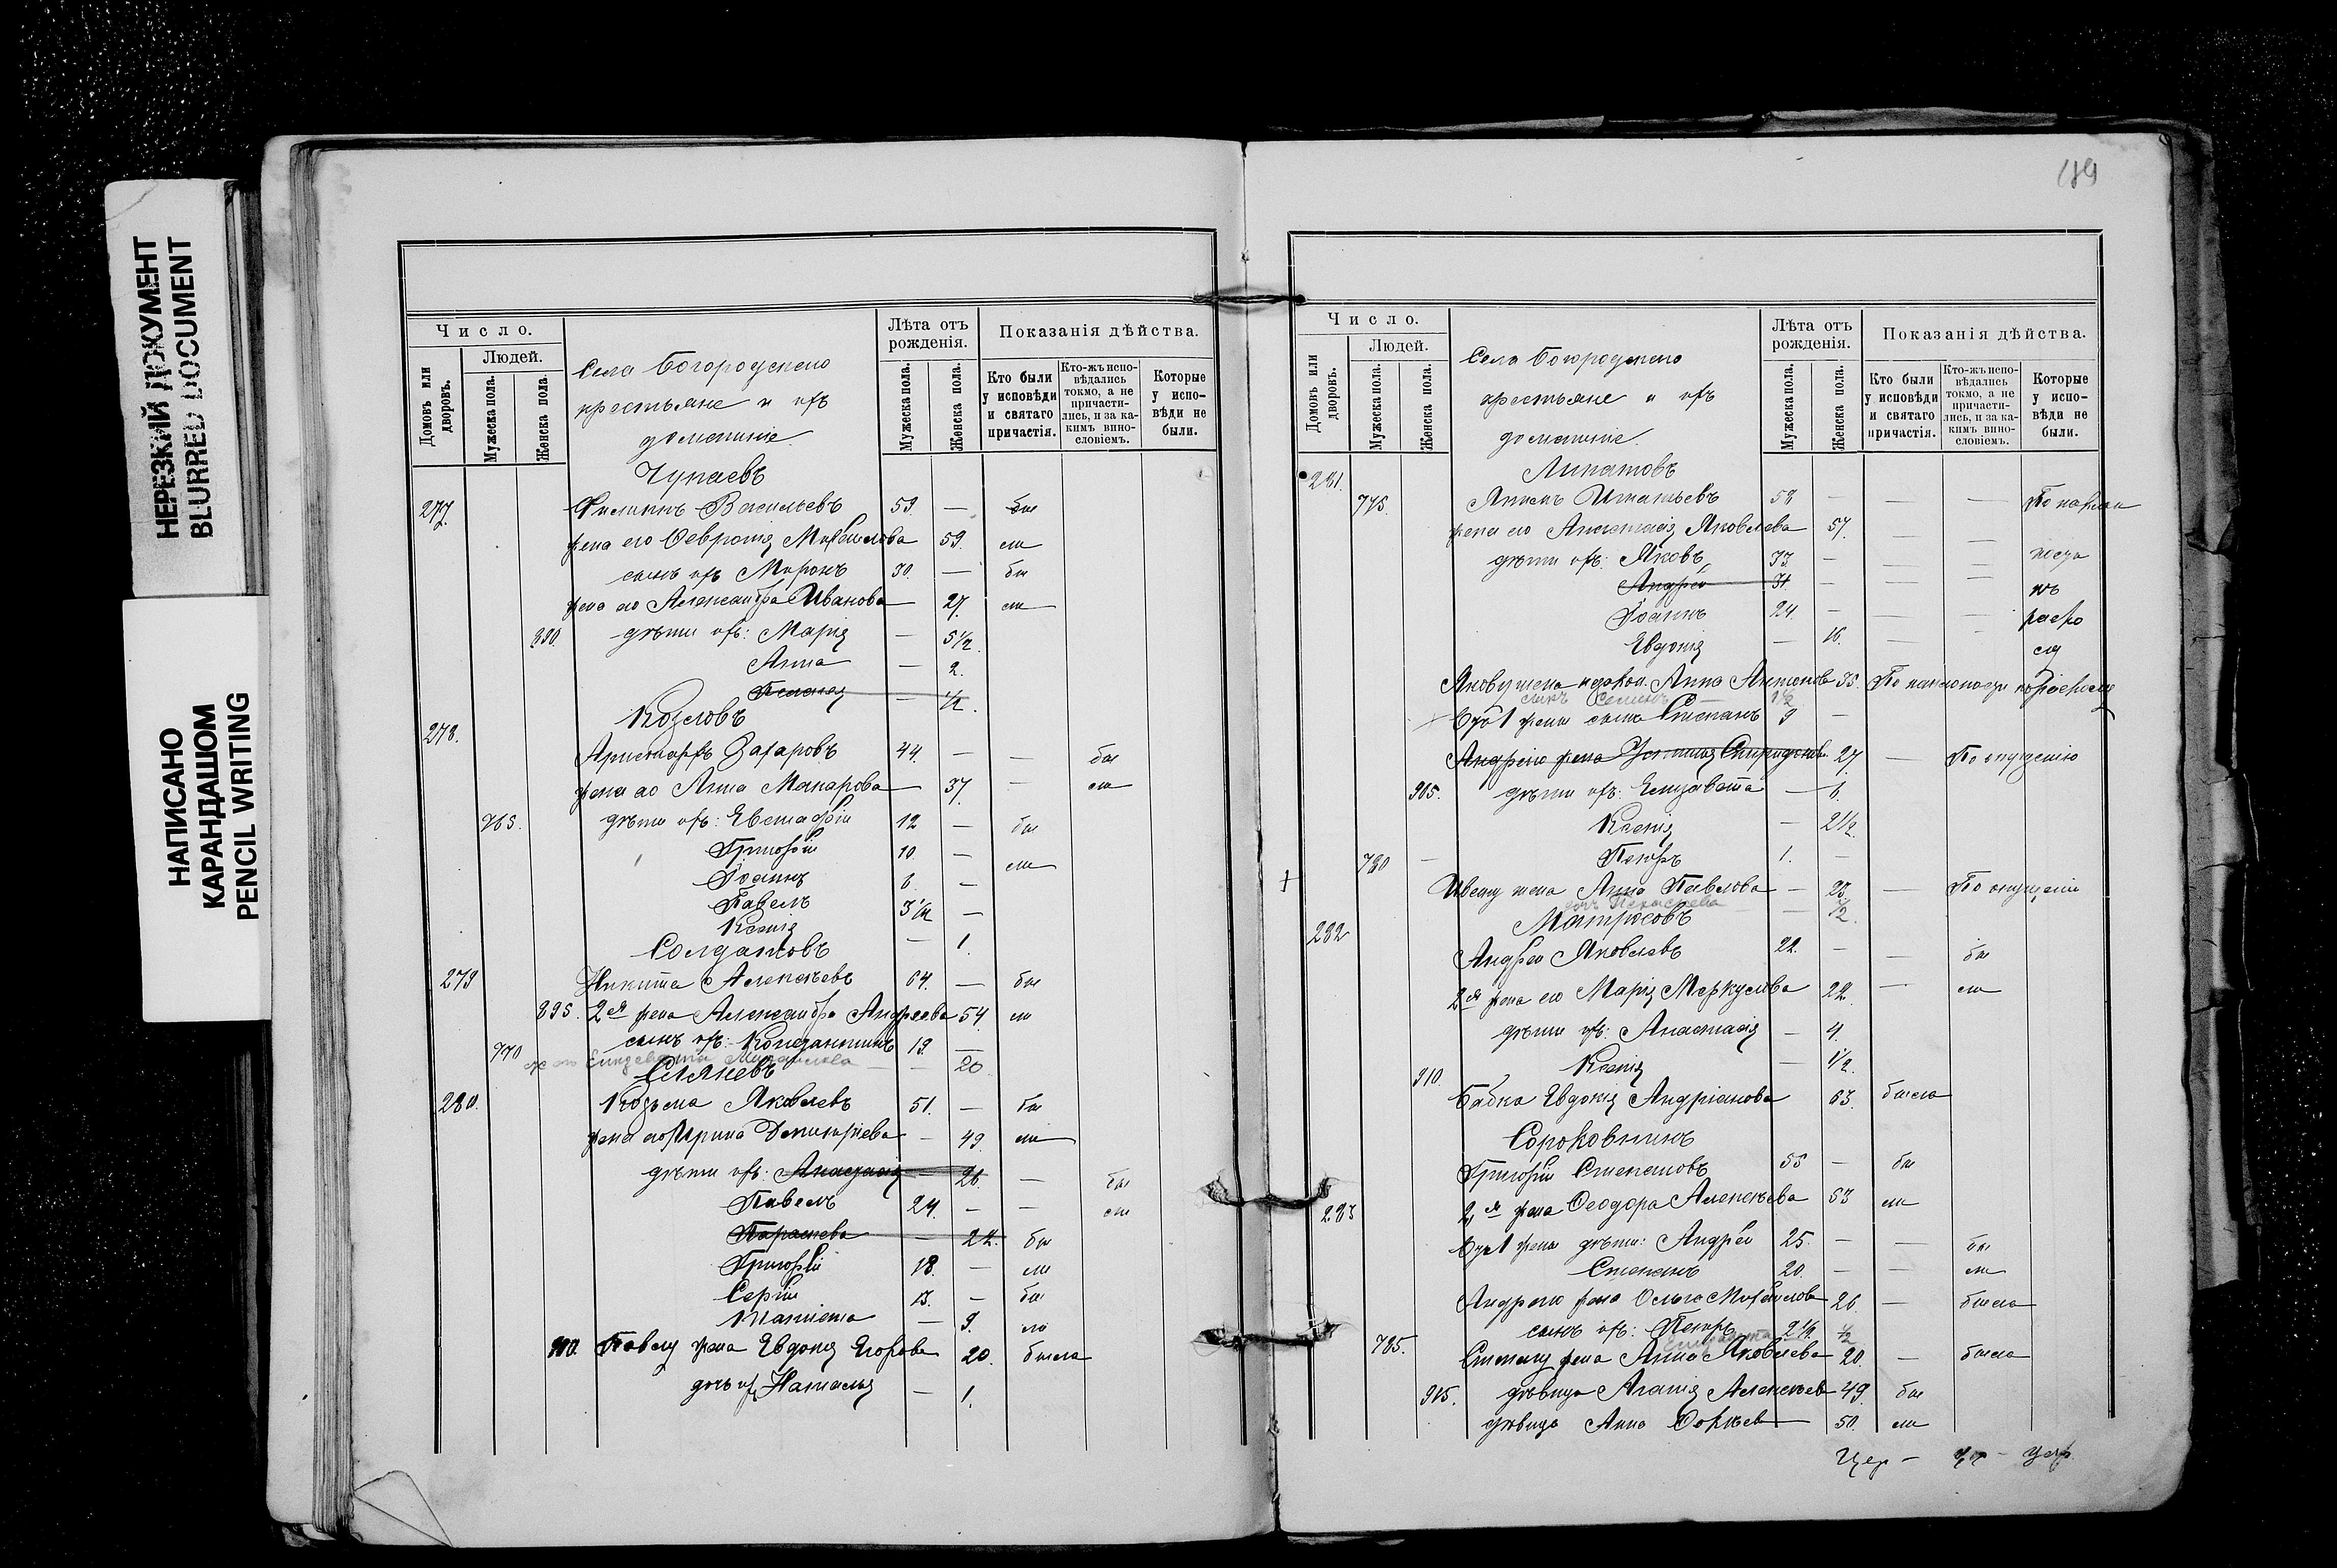 НЕРЕЗКИЙ ДОКУМЕНТ
BLURRED DOCUMENT
НАПИСАНО
КАРАНДАШОМ
PENCIL WRITING
Число.
Людей.
Домовъ или дворовъ.
Мужеска пола.
Женска пола.
Села Богородскаго
крестьяне и ихъ
домашніе
Лѣта отъ рожденія.
Мужеска пола.
Женска пола.
Показанія дѣйства.
Кто были у исповѣди и святаго причастія.
Кто-жъ исповѣдались токмо, а не причастились, и за какимъ винословіемъ.
Которые у исповѣди не были.
Чупаевъ
277. Филиппъ Васильевъ 59. — бы
жена его Феврonія Михаилова 59. ли
сынъ ихъ Миронъ 30. — бы
жена его Александра Иванова 27. ли
890. дѣти ихъ: Марія — 5 1/2
Анна — 2.
Пелагея — 1/2.
278. Козловъ
Аристархъ Захаровъ 44. — — бы
жена его Анна Макарова 37. — ли
765. дѣти ихъ: Евстафій 12 — бы
Григорій 10. — ли
Іоаннъ 6. —
Павелъ 3 1/2 —
Ксенія — 1.
Солдатовъ
279 Никита Алексѣевъ 64. — бы
895. 2я жена Александра Андреева 54 ли
770 сынъ ихъ: Константинъ 19. —
ж его Елизавета Михаилова — 20
Слякевъ
280. Козьма Яковлевъ 51. — бы
жена его Ирина Димитріева — 49. ли
дѣти ихъ: Анастасія — 26. — бы
Павелъ 24. — — ли
Параскева — 22. бы
Григорій 18. — ли
Сергій 13. — бы
Татіана — 9. ло
900. Павлу жена Евдокія Егорова 20. была
дочь их Наталья — 1.
Число.
Людей.
Домовъ или дворовъ.
Мужеска пола.
Женска пола.
Села Богородскаго
крестьяне и ихъ
домашніе.
Лѣта отъ рожденія.
Мужеска пола.
Женска пола.
Показанія дѣйства.
Кто были у исповѣди и святаго причастія.
Кто-жъ исповѣдались токмо, а не причастились, и за какимъ винословіемъ.
Которые у исповѣди не были.
281. Липатовъ
775. Игнатьевъ 58 — — — По наклон
жена его Анастасія Яковлева 57. — —
дѣти ихъ: Яковъ 33. — — — ности
Андрей 31. — — — къ
Іоаннъ 24. — — — раско
Евдокія — 16. — — лу
Якову жена незакон. Анна Антонова 35. По наклонности къ расколу
сынъ 1 1/2
Отъ 1 жены сынъ Степанъ 9 —
Андрею жена Спиридонова 27. — По опущенію
905. дѣти ихъ: Елизавета — 6.
Ксенія — 2 1/2.
780 — Петръ 1. —
Ивану жена Анна Павлова — 23. — По опущенію
доч Параскева — 1/2.
282 Матросовъ
Андрей Яковлевъ 22. — — бы
2я жена его Марія Меркулова 22. — ли
дѣти ихъ: Анастасія — 4.
910. Ксенія — 1/2.
Бабка Евдокія Андріанова 63. была
Сороковникъ
Григорій Степановъ 55 — бы
283 2я жена Феодора Алексѣева 53 ли
Отъ 1 жены дѣти: Андрей 25. — — бы
Степанъ 20. — — ли
Андрею жена Ольга Михаилова 26. — была
785. сынъ ихъ: Петръ 2 1/2. 1/2
Степану жена Анна Яковлева 20. — была
915. дѣвица Агапія Алексѣев 49. бы
дѣвица Анна 50. ли